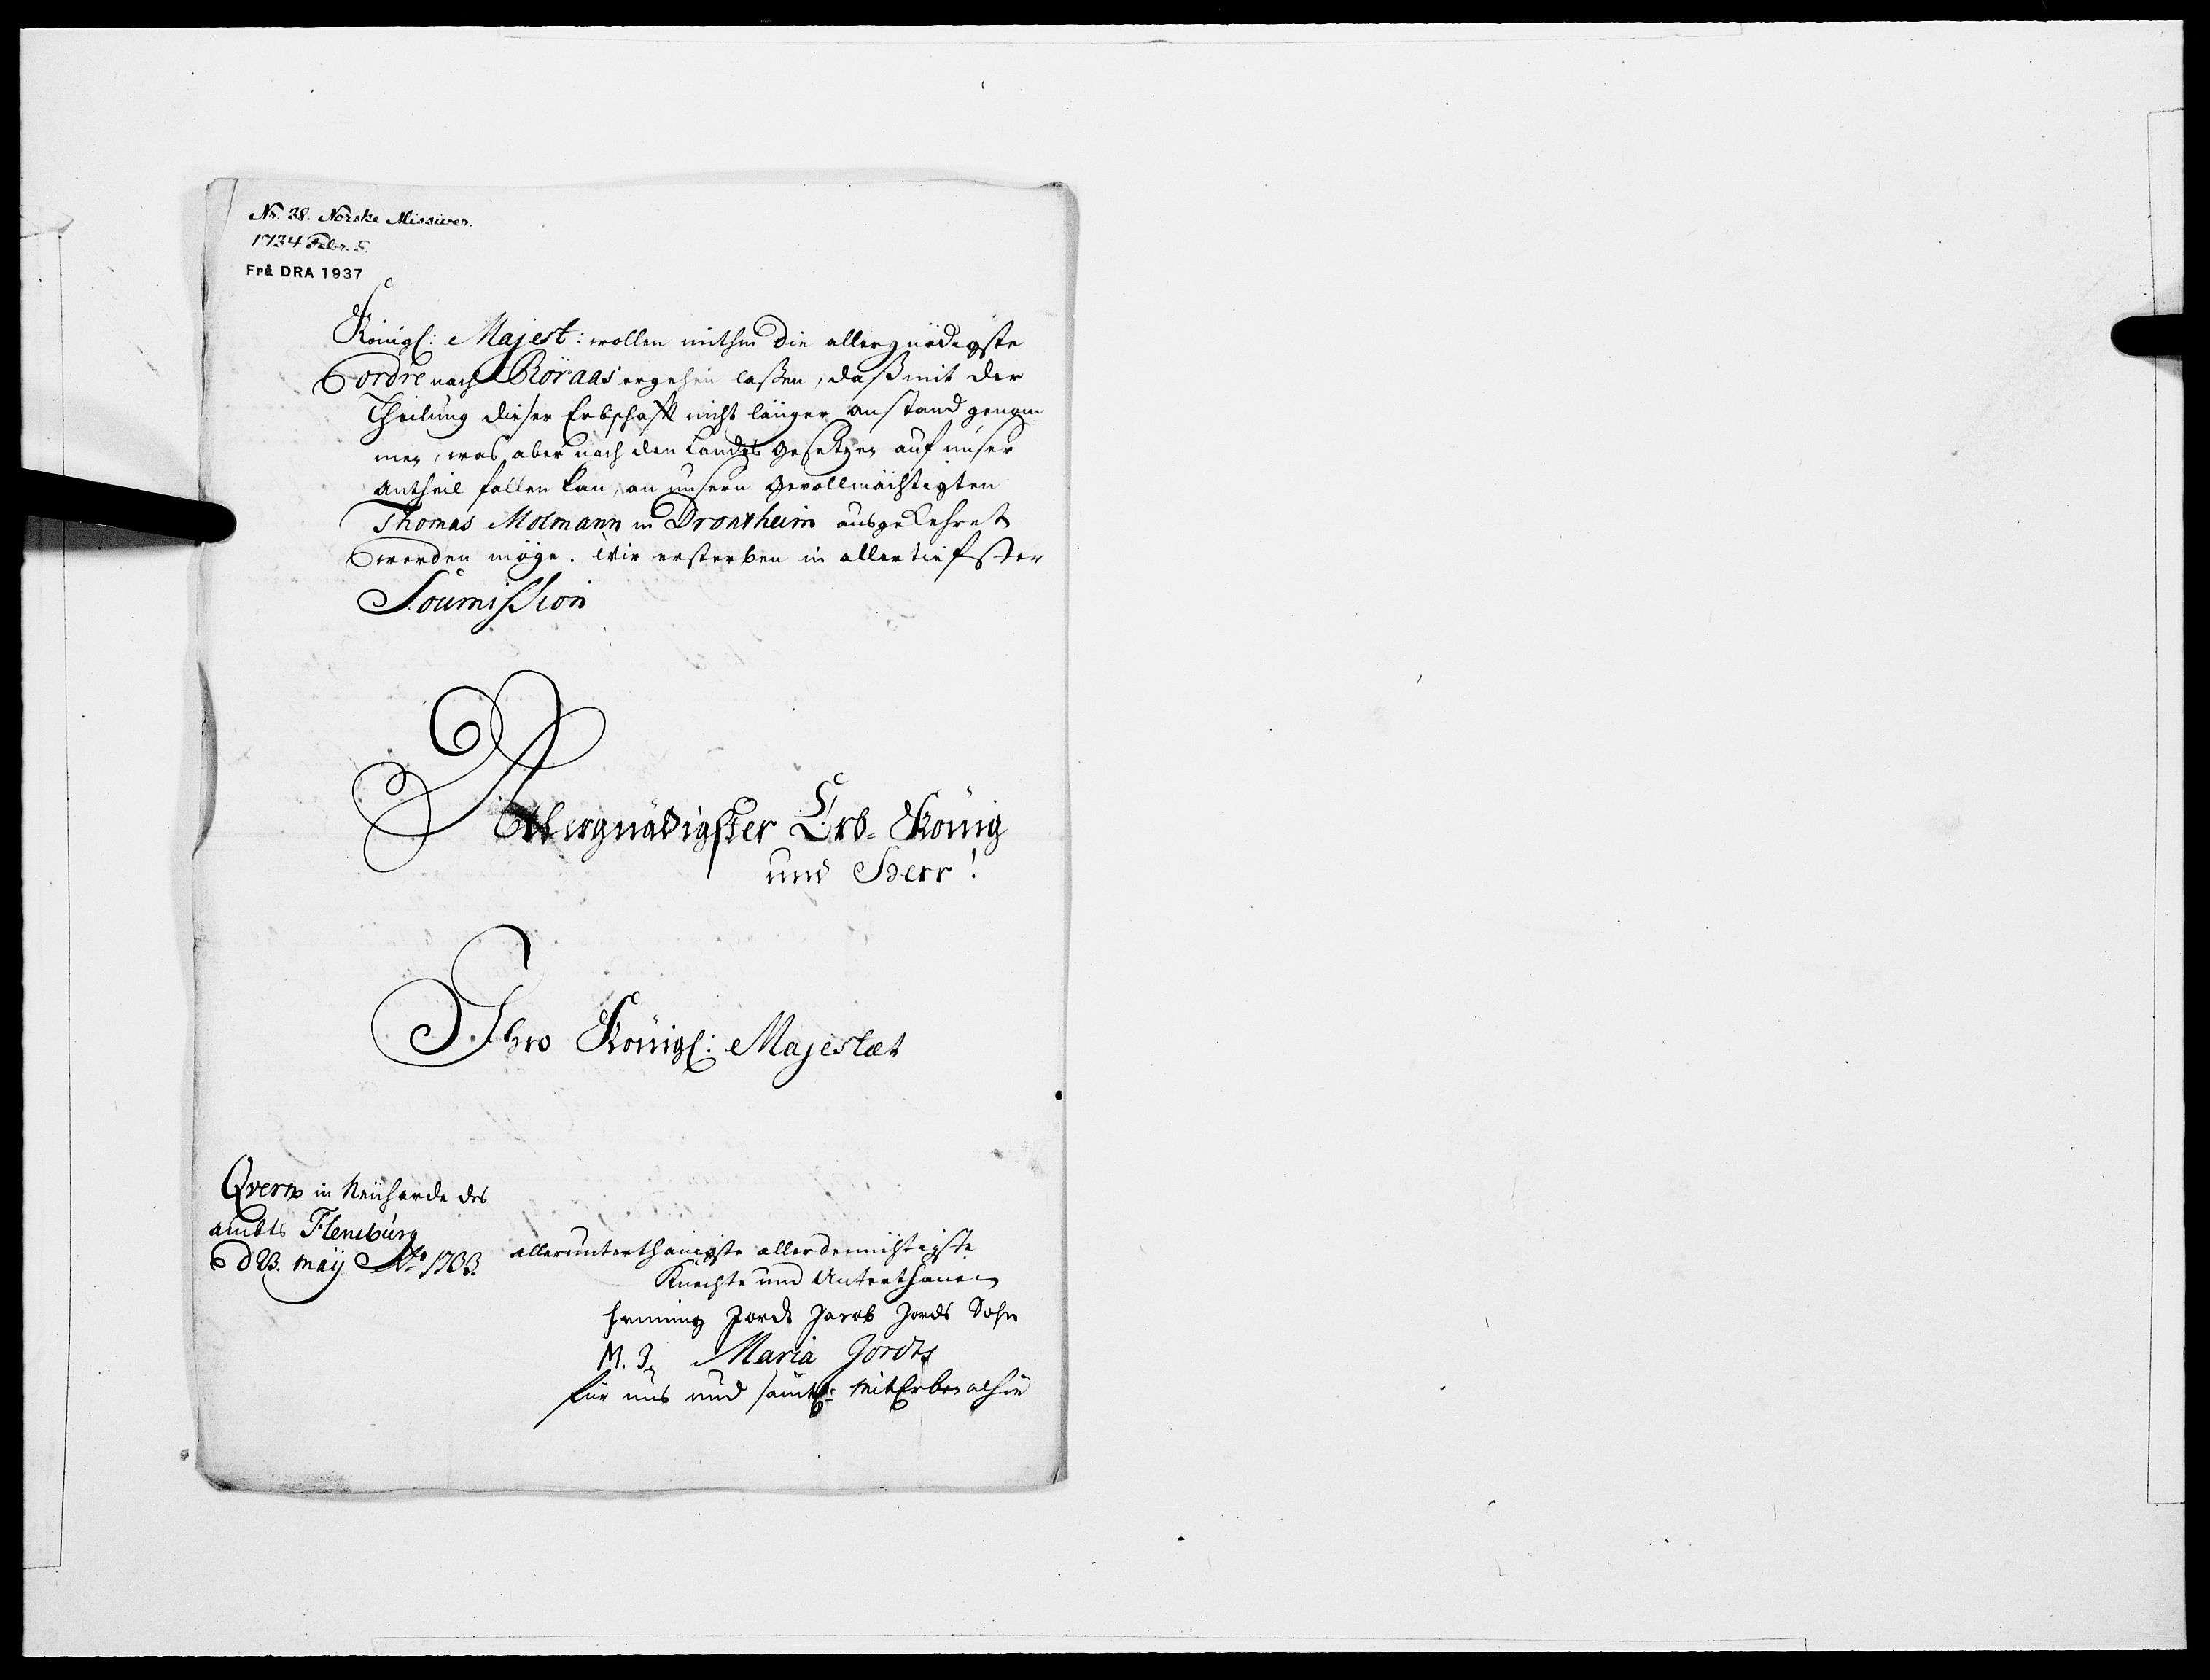 Nr. 38. Norske Missiver.
1734 Febr. 5.
Frå DRA 1937
Königl: Majest: wollen mithin die allergnädigste
ordre nach Röraas ergehen laßen, daß mit der
Theilung dieser Erbschafft nicht länger anstand genom=
men, was aber nach den Landes Gesetzen auf unser
Antheil fallen kan, an unsern Gevollmächtigten
Thomas Molmann in Drontheim ausgekehret
werden möge. Wir ersterben in allertiefster
Soumission
Allergnädigster Erb-König
und Herr!
Ihro Königl: Majestæt
Qvern in Neüharde des
ambts Flensburg
d 23. Maij Ao 1733.
allerunterthänigste allerdemüthigste
Knechte und Unterthanen
Henning Jordt Jacob Jords Sohn
M. J. Maria Jordts
für uns und sämtl: MitErben alhie